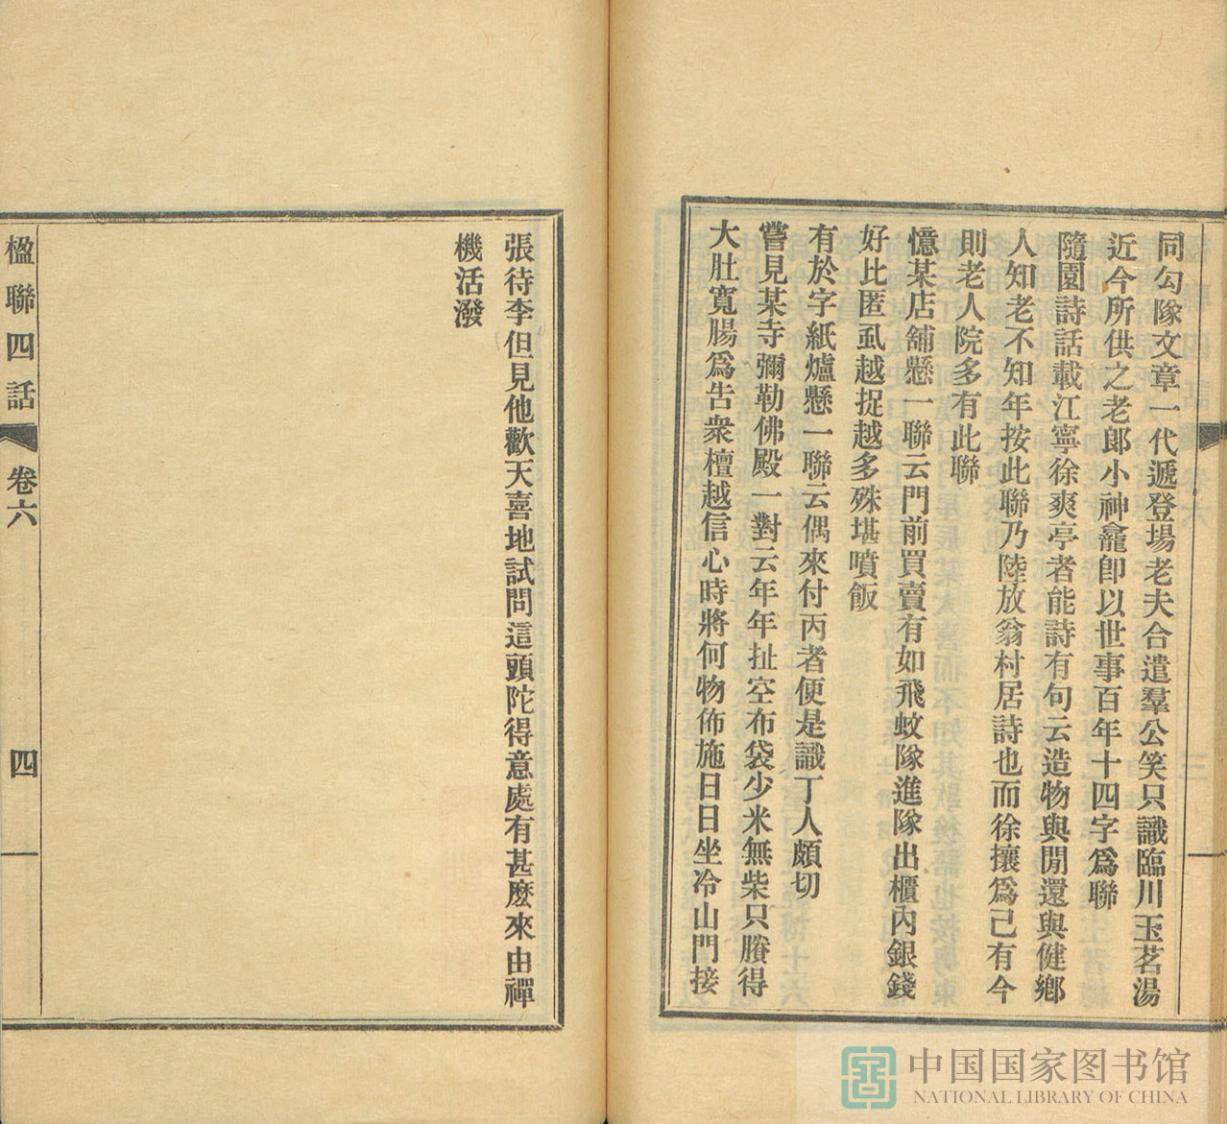 同勾隊文章一代遞登場老夫合遣羣公笑只識臨川玉茗湯
近今所供之老郎小神龕卽以世事百年十四字爲聯
隨園詩話載江寧徐爽亭者能詩有句云造物與閒還與健鄉
人知老不知年按此聯乃陸放翁村居詩也而徐攘爲己有今
則老人院多有此聯
憶某店舖懸一聯云門前買賣有如飛蚊隊進隊出櫃內銀錢
好比匿虱越捉越多殊堪噴飯
有於字紙爐懸一聯云偶來付丙者便是識丁人頗切
嘗見某寺彌勒佛殿一對云年年扯空布袋少米無柴只賸得
大肚寬腸爲告衆檀越信心時將何物佈施日日坐冷山門接
張待李但見他歡天喜地試問這頭陀得意處有甚麽來由禪
機活潑
楹聯四話
卷六
四
中国国家图书馆
NATIONAL LIBRARY OF CHINA